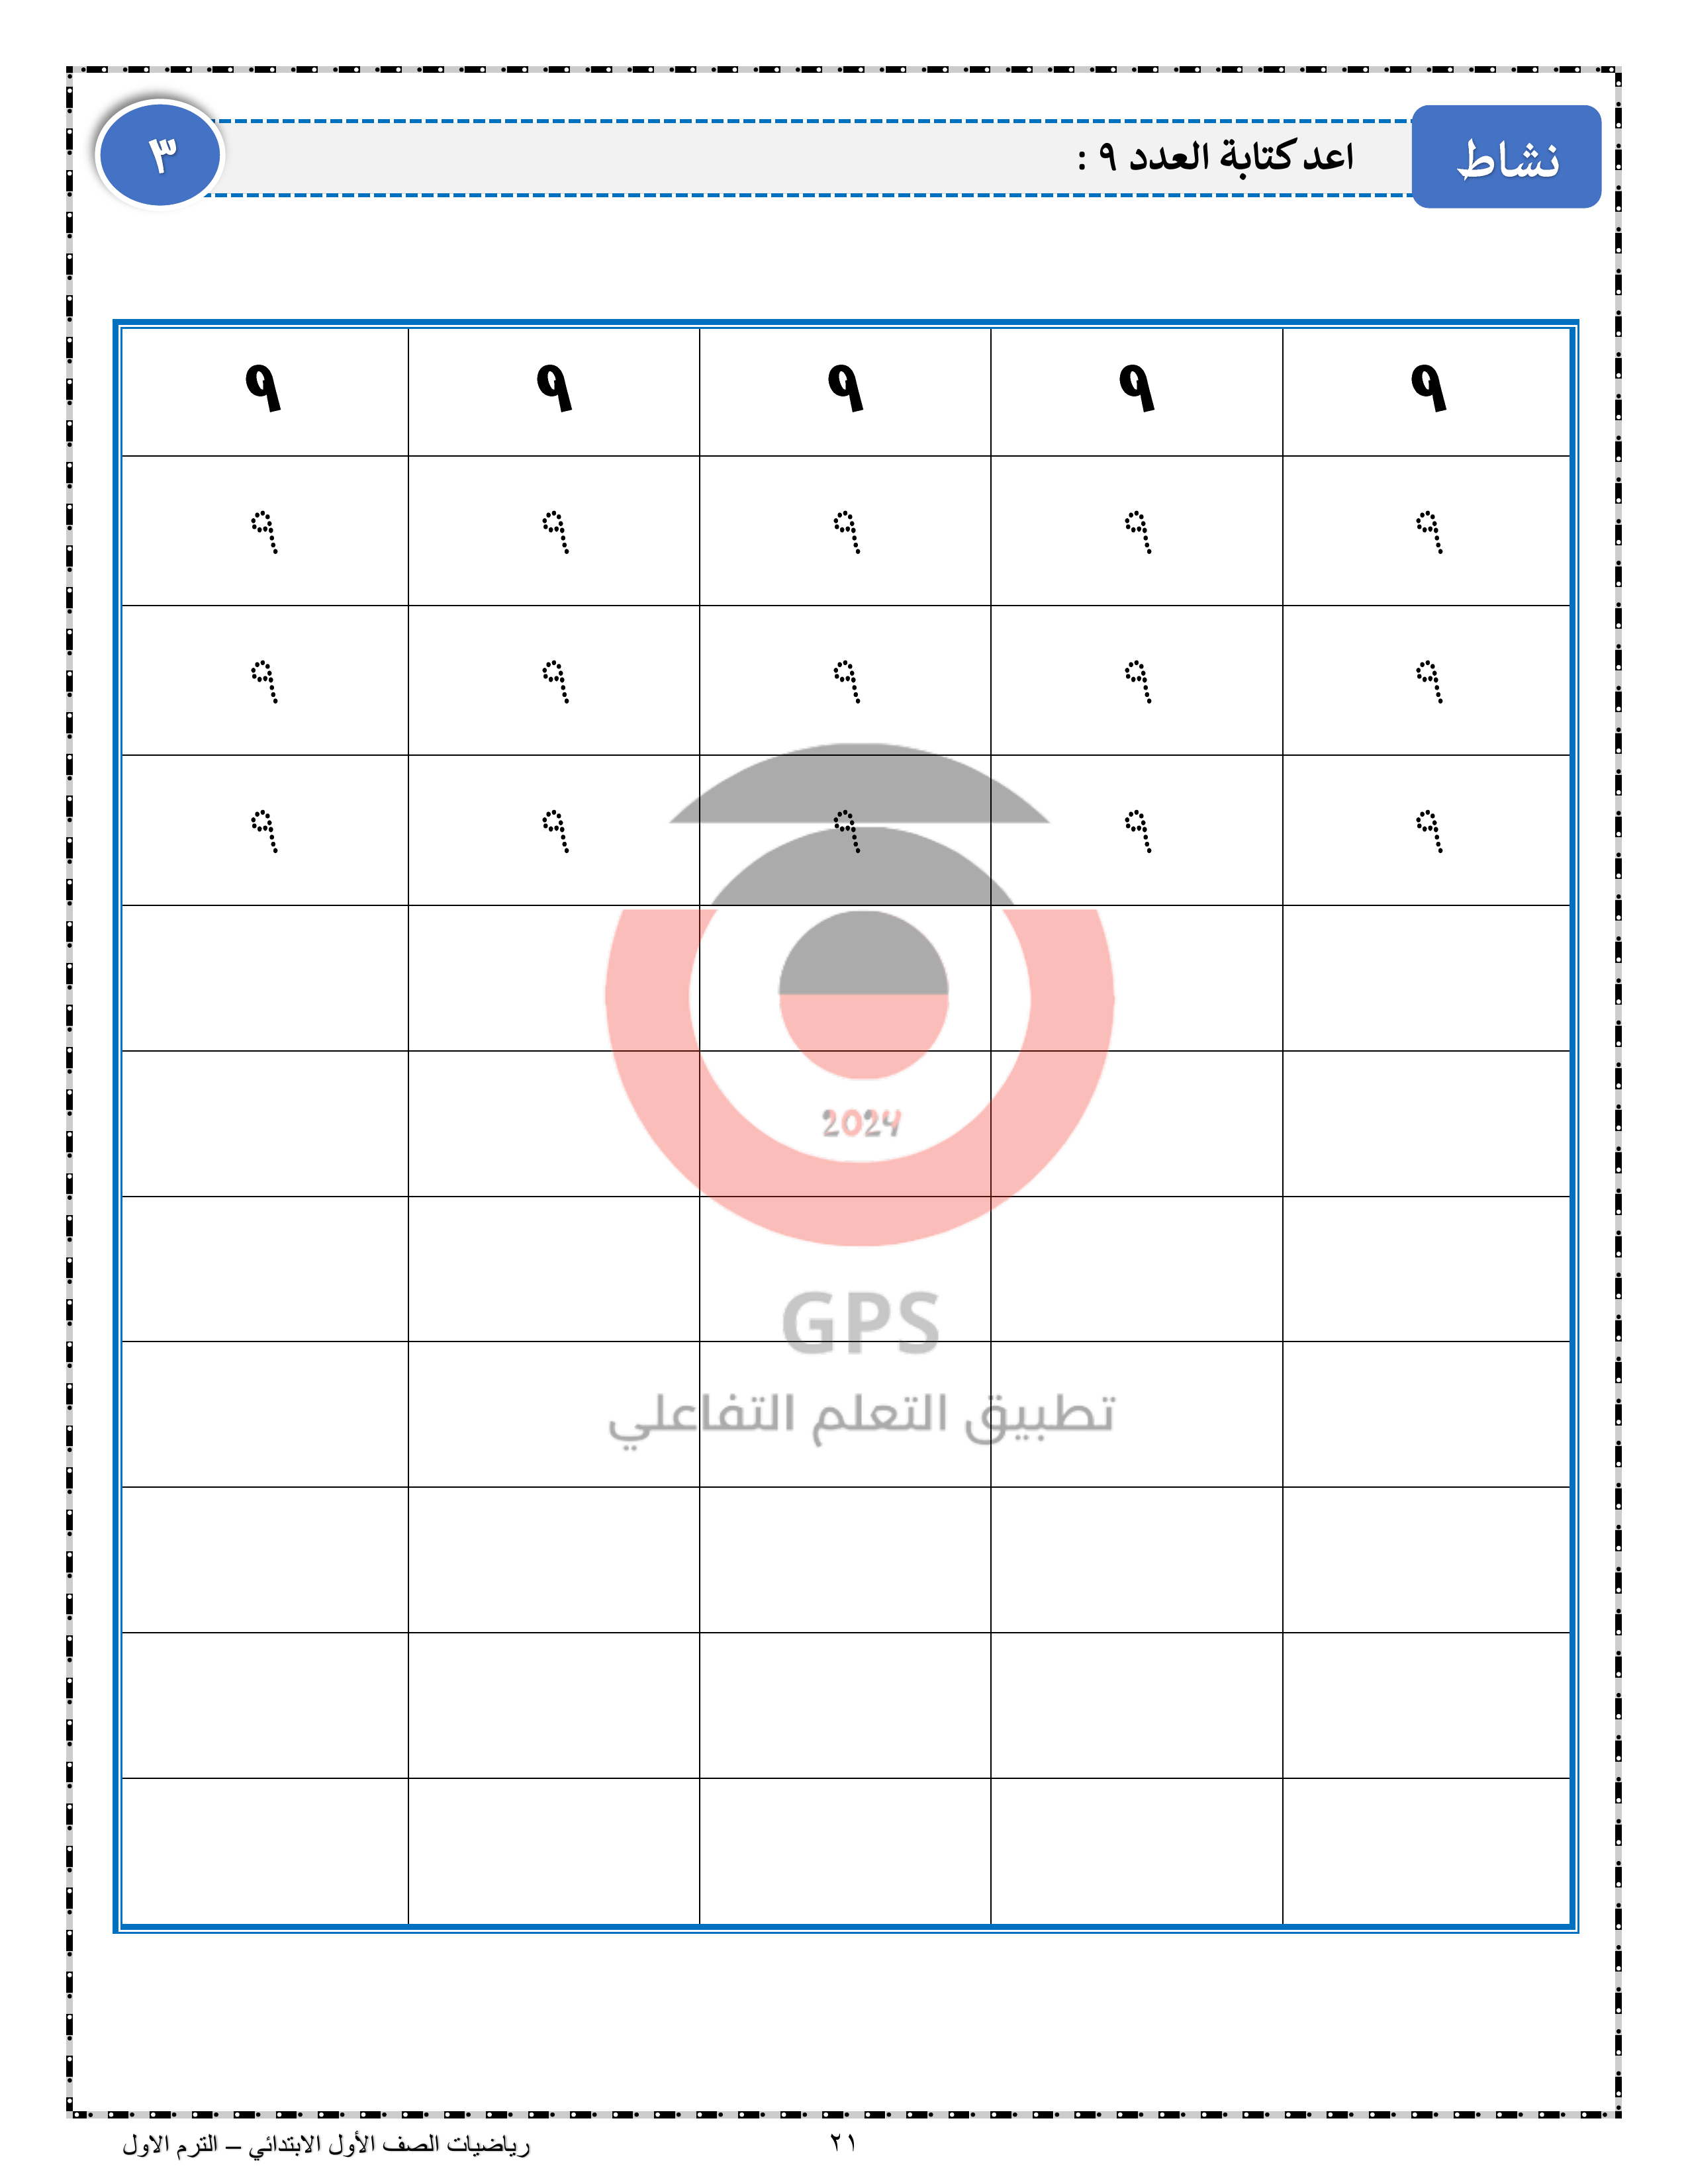 نشاط
اعد كتابة العدد ٩ :
٣
٩ ٩ ٩ ٩ ٩
٩ ٩ ٩ ٩ ٩
٩ ٩ ٩ ٩ ٩
٩ ٩ ٩ ٩ ٩
2024
GPS
تطبيق التعلم التفاعلي
٢١
رياضيات الصف الأول الابتدائي – الترم الاول